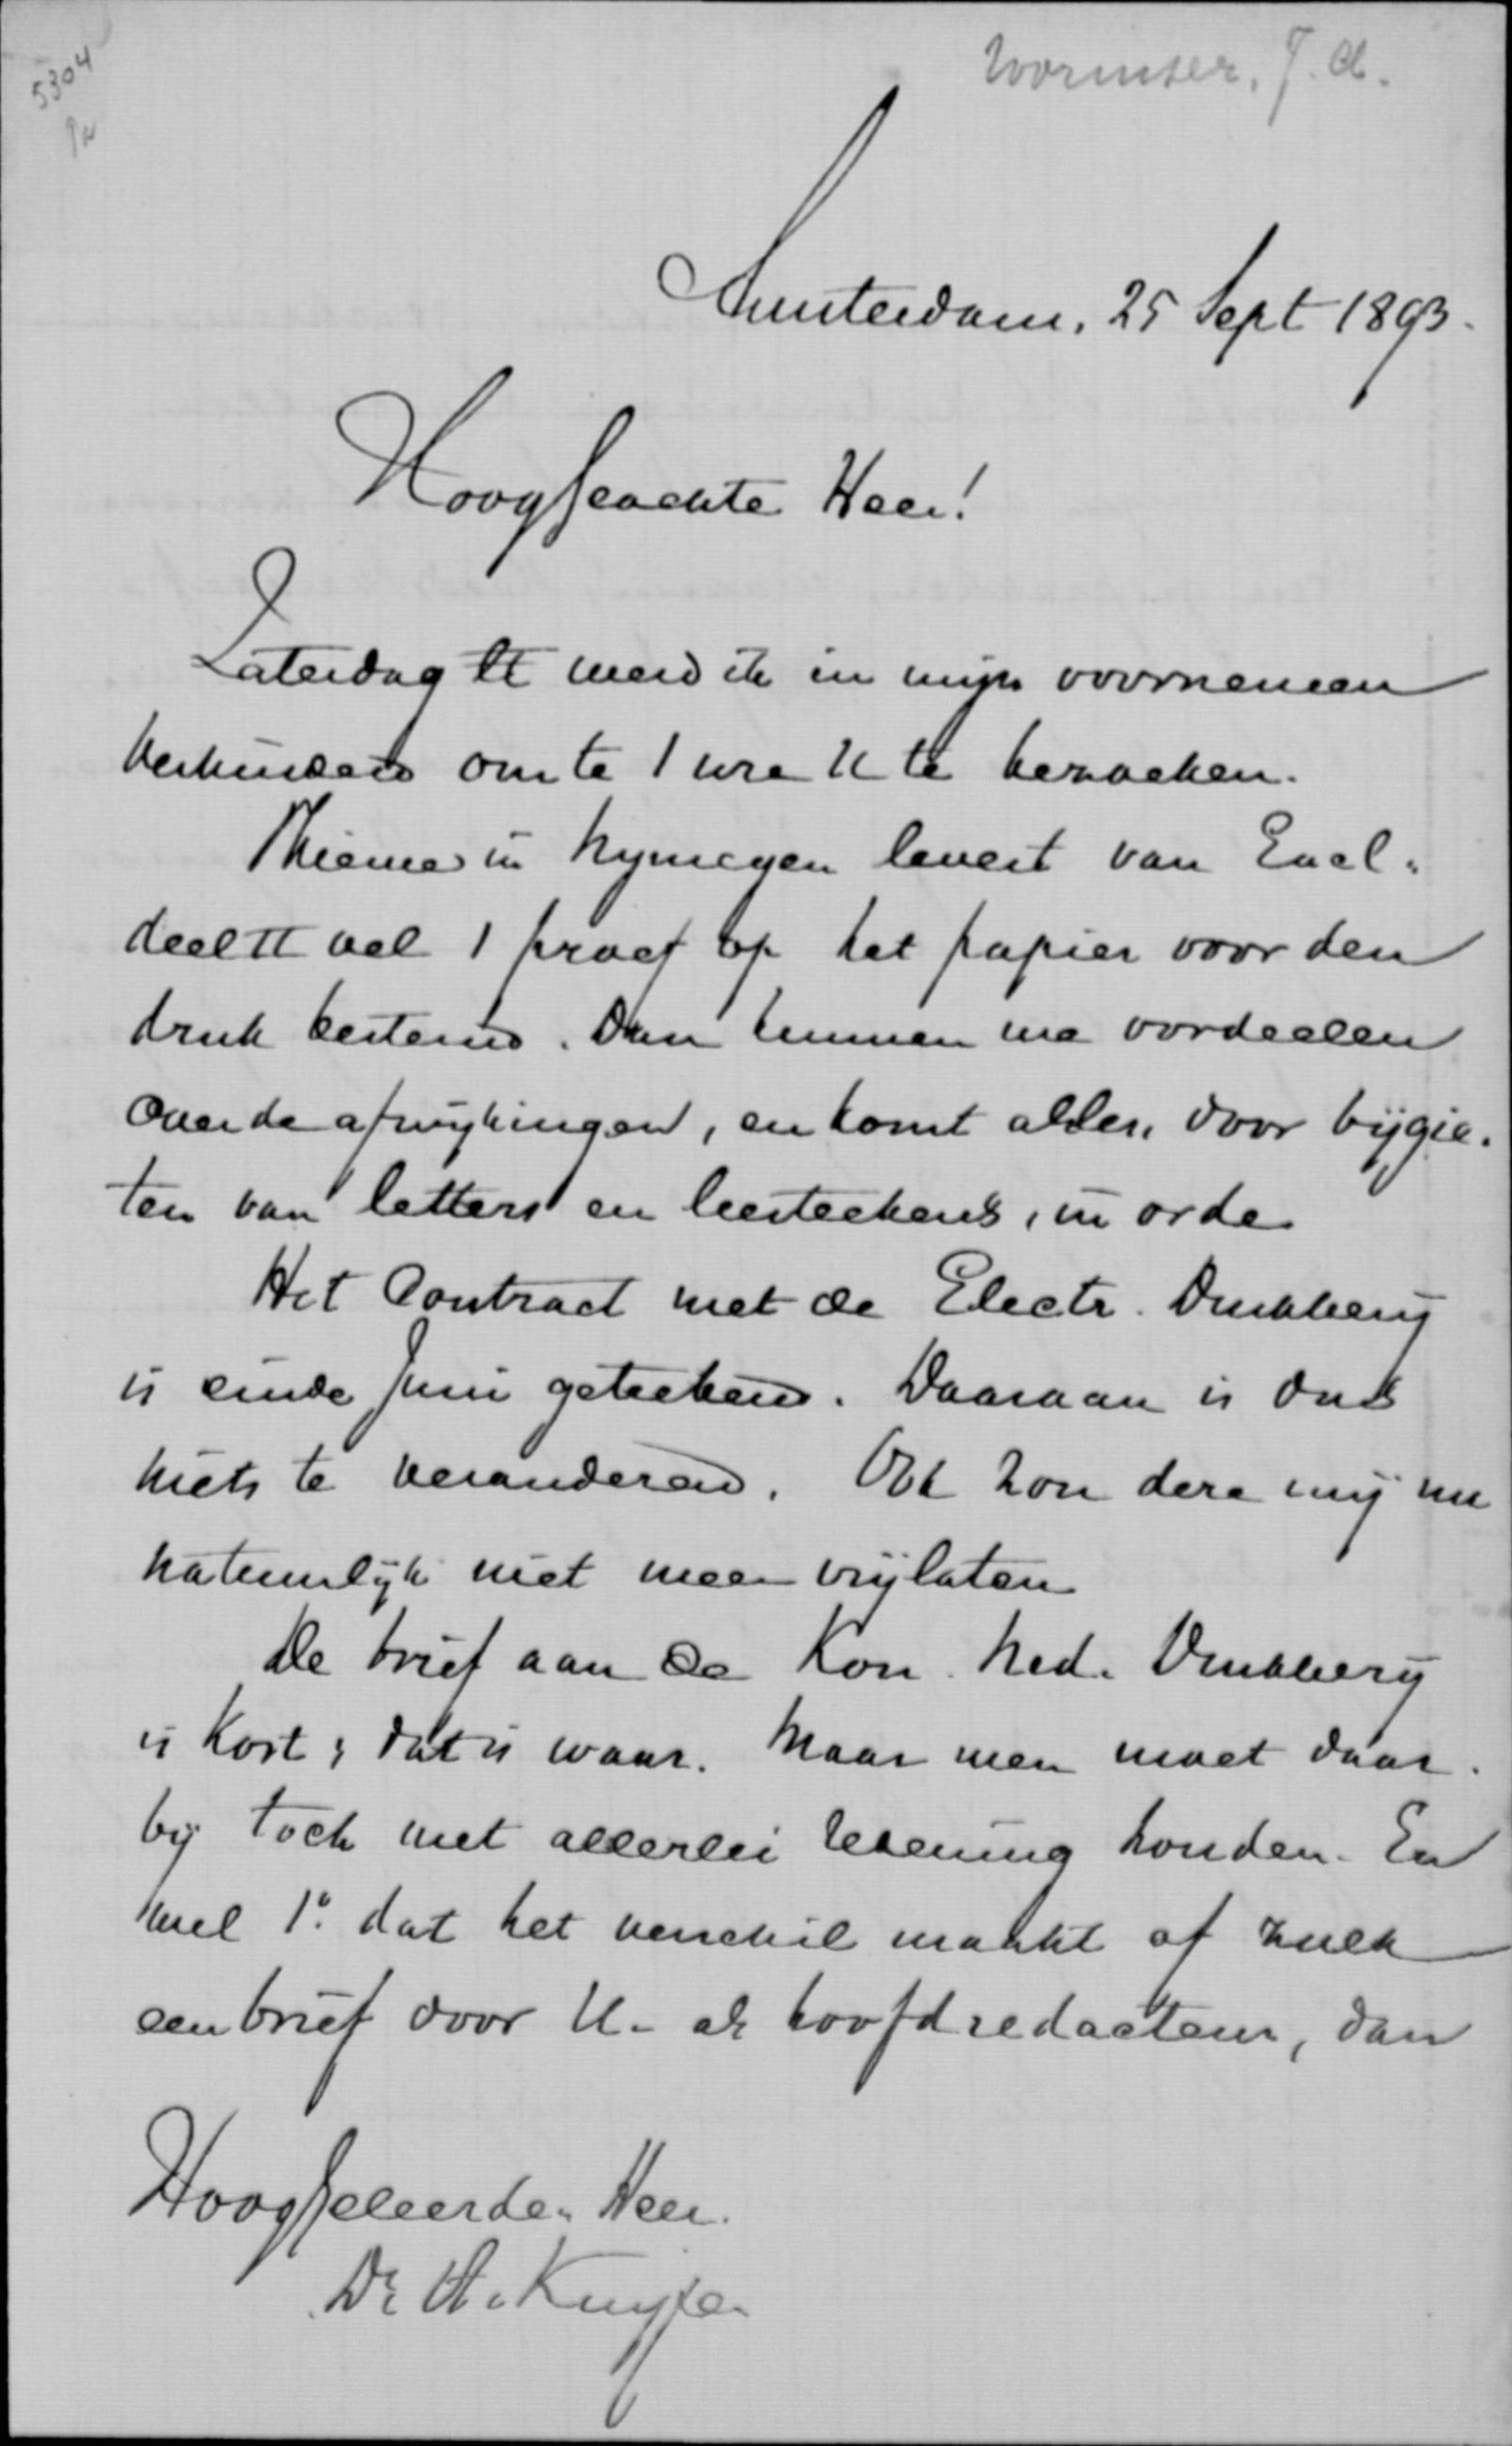 5304
Wormser, J.A.
Amsterdam, 25 Sept 1893.
HoogGeachte Heer!
Zaterdag ll werd ik in mijn voornemen
verhinderd om te 1 ure U te bezoeken.
Thieme in Nijmegen levert van Encl.
deel II vel 1 proef op het papier voor den
druk bestemd. Dan kunnen we oordeelen
over de afwijkingen, en komt alles, door bijgie-
ten van letters en leesteekens, in orde
Het Contract met de Electr. Drukkerij
is einde Juni geteekend. Daaraan is dus
niets te veranderen. Ook zou deze mij nu
natuurlijk niet meer vrijlaten
De brief aan de Kon. Ned. Drukkerij
is kort; dat is waar. Maar men moet daar-
bij toch met allerlei rekening houden. En
wel 1º. dat het verschil maakt of zulk
een brief door U. als hoofdredacteur, dan
HoogGeleerden Heer.
Dr A. Kuyper